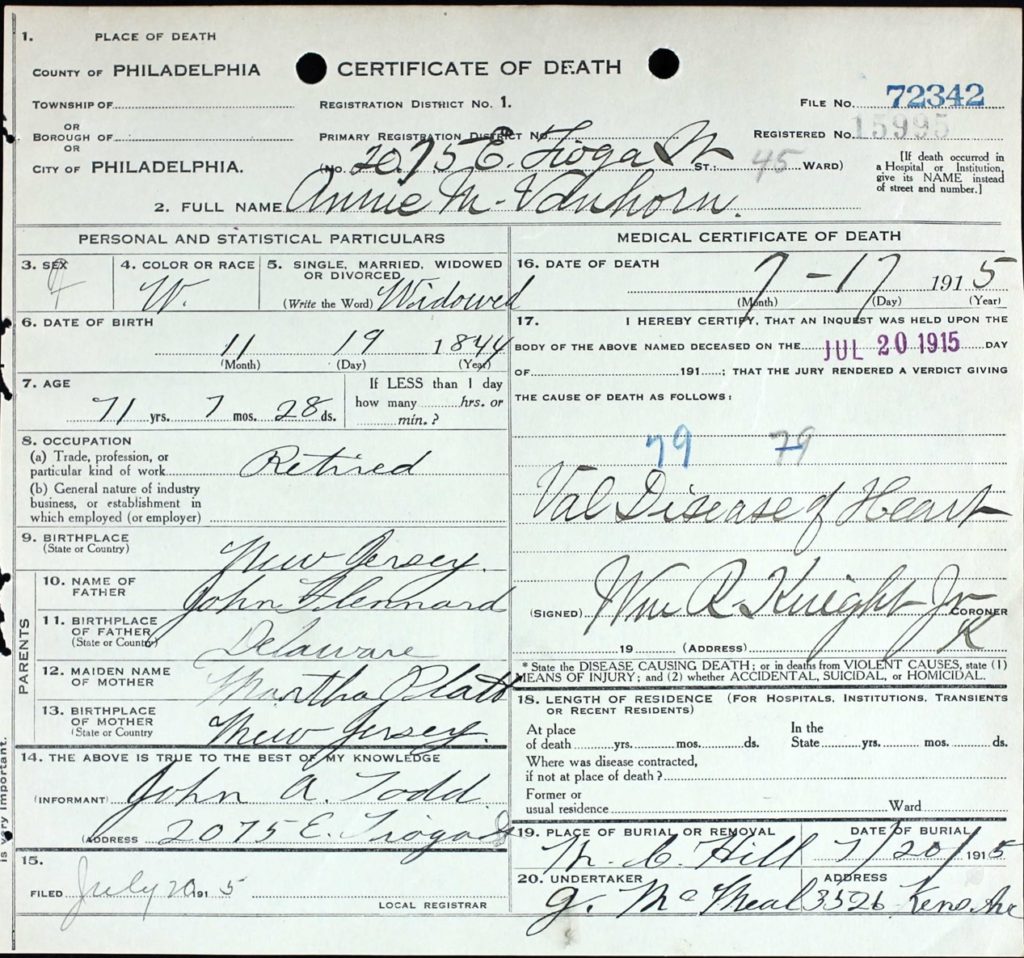 1. PLACE OF DEATH
COUNTY OF PHILADELPHIA
CERTIFICATE OF DEATH
TOWNSHIP OF
REGISTRATION DISTRICT NO. 1.
FILE NO. 72342
OR
BOROUGH OF
PRIMARY REGISTRATION DISTRICT NO.
REGISTERED NO. 15995
OR
CITY OF PHILADELPHIA.
(NO. 2075 E. Tioga St ST.: 45 WARD)
[If death occurred in
a Hospital or Institution,
give its NAME instead
of street and number.]
2. FULL NAME Annie M. Vanhorn.
PERSONAL AND STATISTICAL PARTICULARS
3. SEX
F
4. COLOR OR RACE
W.
5. SINGLE, MARRIED, WIDOWED
OR DIVORCED
(Write the Word) Widowed
6. DATE OF BIRTH
11 19 1844
(Month) (Day) (Year)
7. AGE
71 yrs. 7 mos. 28 ds.
If LESS than 1 day
how many hrs. or
min.?
8. OCCUPATION
(a) Trade, profession, or
particular kind of work Retired
(b) General nature of industry
business, or establishment in
which employed (or employer)
9. BIRTHPLACE
(State or Country) New Jersey.
PARENTS
10. NAME OF
FATHER John Flennard
11. BIRTHPLACE
OF FATHER
(State or Country) Delaware
12. MAIDEN NAME
OF MOTHER Martha Platt
13. BIRTHPLACE
OF MOTHER
(State or Country New Jersey.
14. THE ABOVE IS TRUE TO THE BEST OF MY KNOWLEDGE
(INFORMANT) John A. Todd
(ADDRESS 2075 E. Tioga St
is very important.
15.
FILED July 20 1915
LOCAL REGISTRAR
MEDICAL CERTIFICATE OF DEATH
16. DATE OF DEATH
7-17 1915
(Month) (Day) (Year)
17. I HEREBY CERTIFY, THAT AN INQUEST WAS HELD UPON THE
BODY OF THE ABOVE NAMED DECEASED ON THE JUL 20 1915 DAY
OF 191 ; THAT THE JURY RENDERED A VERDICT GIVING
THE CAUSE OF DEATH AS FOLLOWS:
79 79
Val Disease of Heart
(SIGNED) Wm R. Knight Jr CORONER
K
19 (ADDRESS)
* State the DISEASE CAUSING DEATH; or in deaths from VIOLENT CAUSES, state (1)
MEANS OF INJURY; and (2) whether ACCIDENTAL, SUICIDAL, or HOMICIDAL.
18. LENGTH OF RESIDENCE (FOR HOSPITALS, INSTITUTIONS, TRANSIENTS
OR RECENT RESIDENTS)
At place
of death yrs. mos. ds.
In the
State yrs. mos. ds.
Where was disease contracted,
if not at place of death?
Former or
usual residence Ward
19. PLACE OF BURIAL OR REMOVAL
M. C. Hill
DATE OF BURIAL
7/20/1915
20. UNDERTAKER
J. McMeal
ADDRESS
3526 Kens. Ave